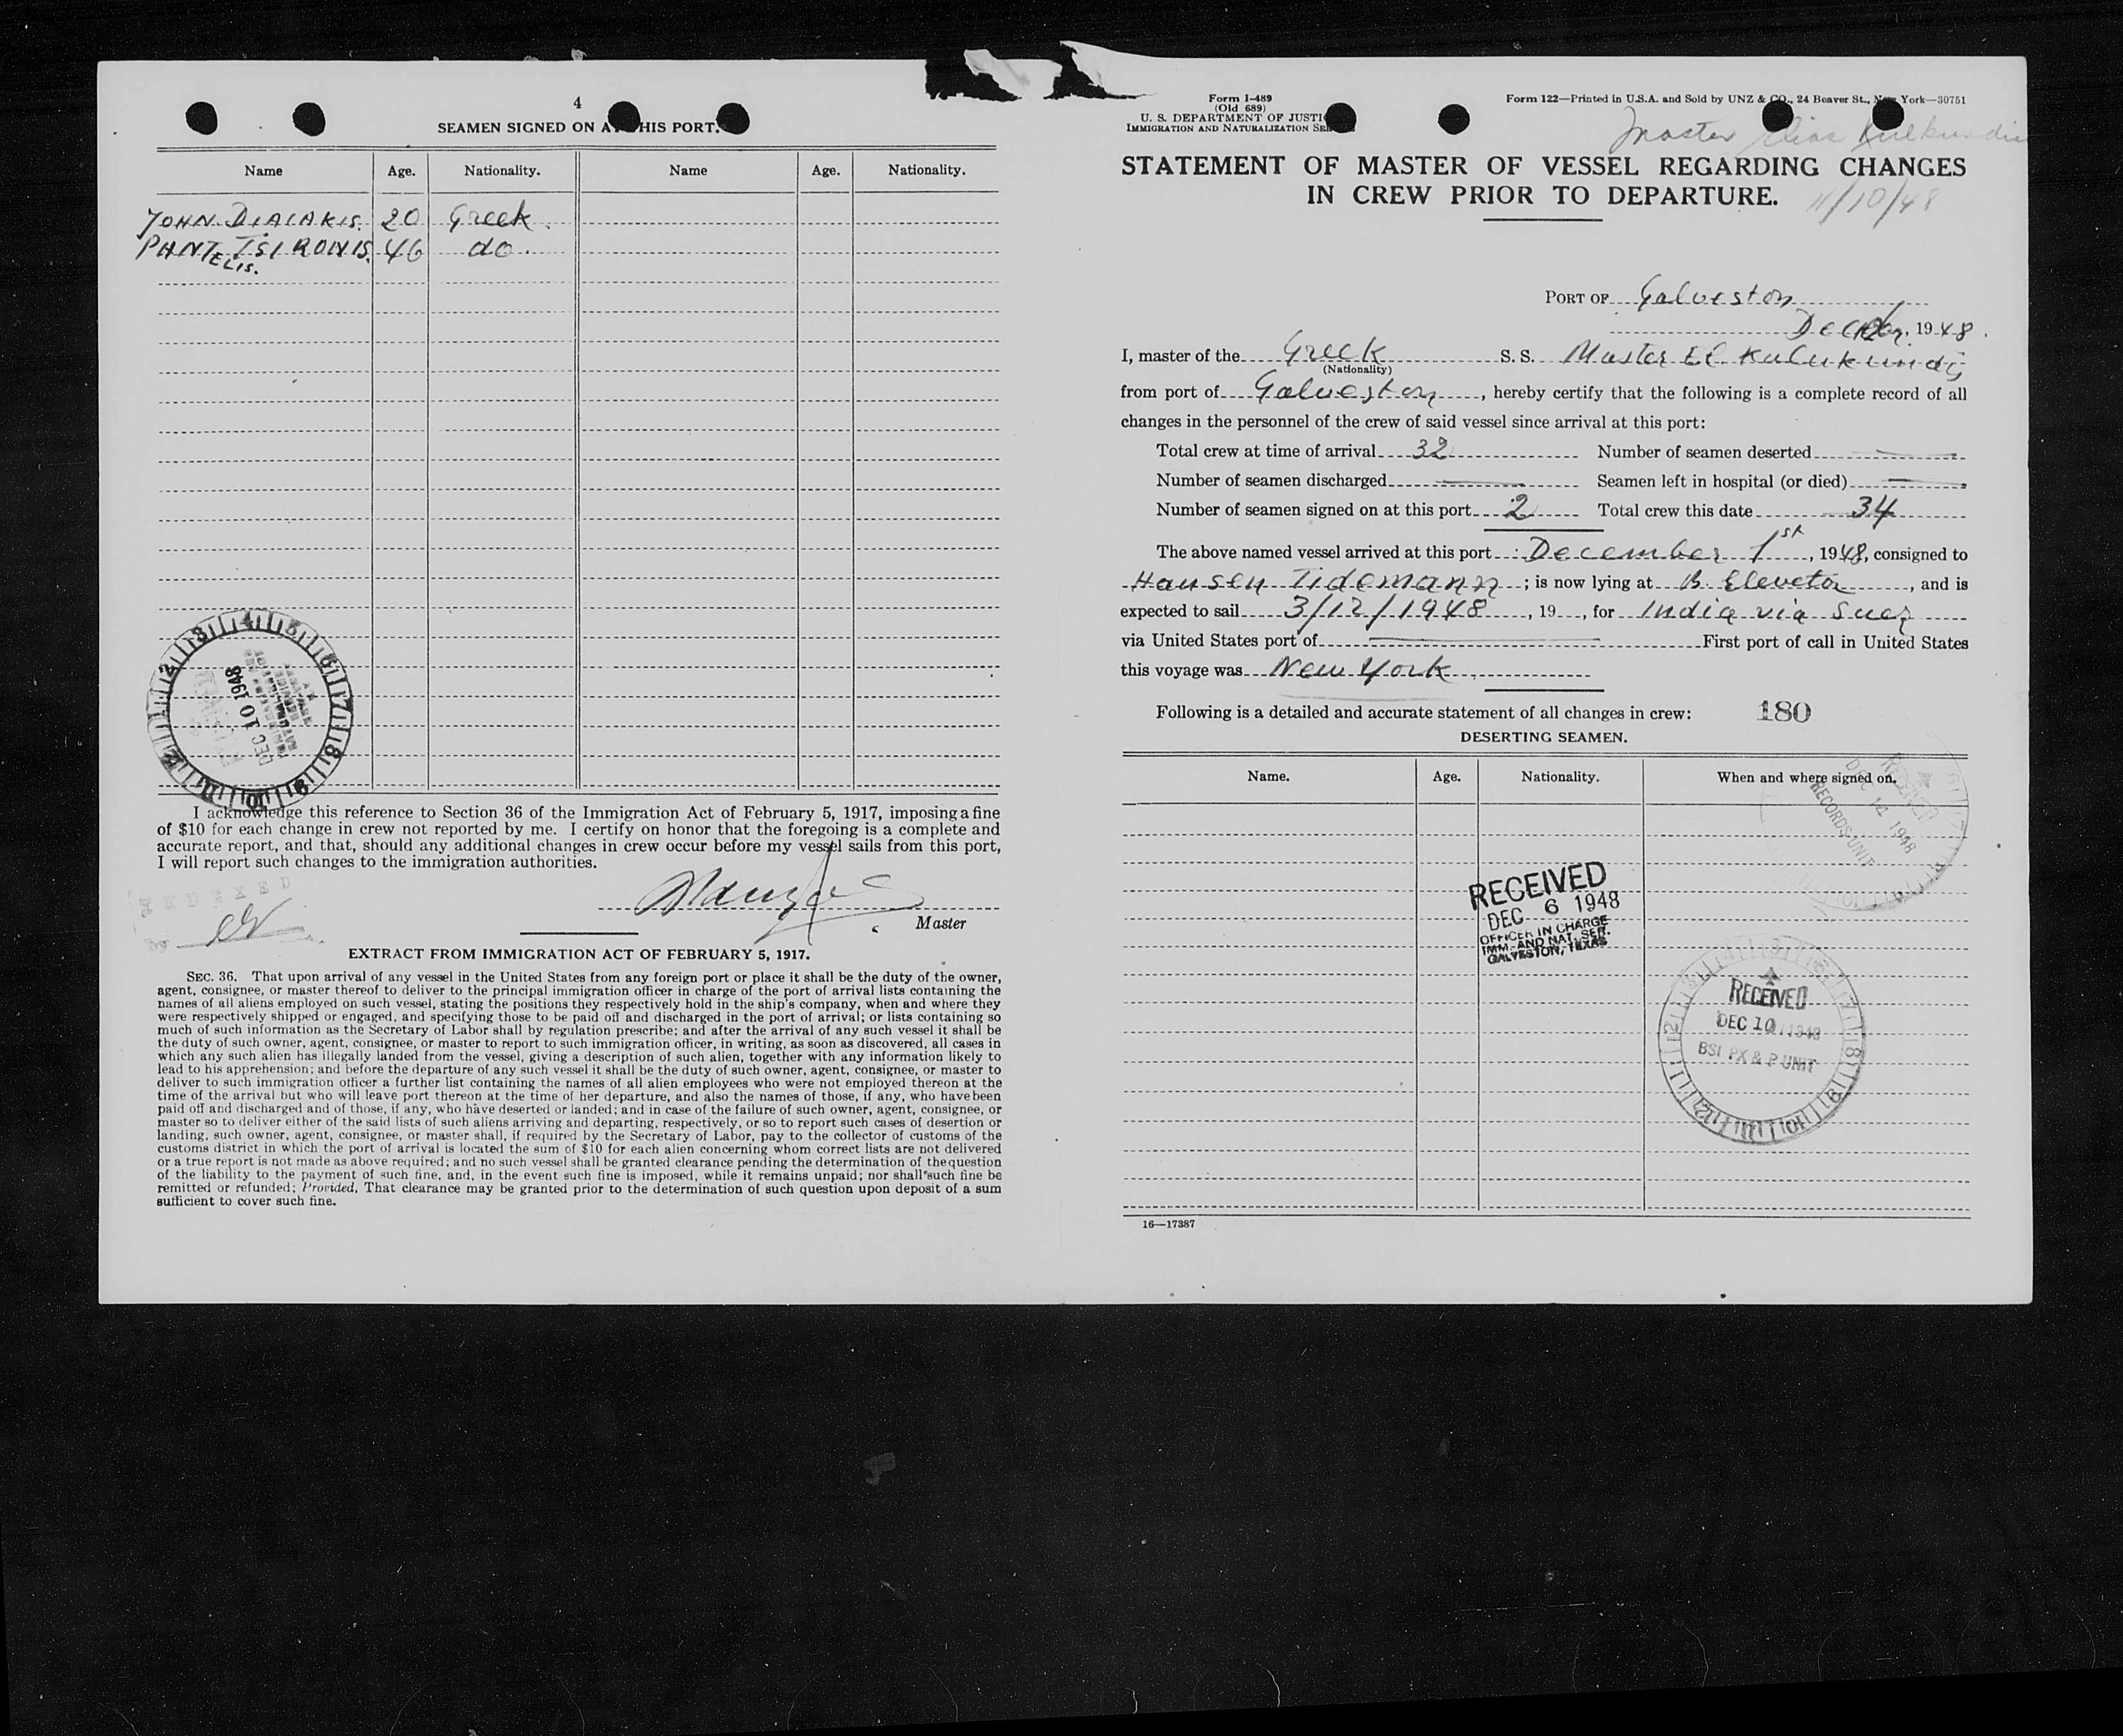 4
SEAMEN SIGNED ON AT THIS PORT.
Name Age. Nationality. Name Age. Nationality.
JOHN DIALAKIS. 20 Greek.
PANTELIS TSIRONIS. 46 do.
DEC 10 1948
I acknowledge this reference to Section 36 of the Immigration Act of February 5, 1917, imposing a fine
of $10 for each change in crew not reported by me. I certify on honor that the foregoing is a complete and
accurate report, and that, should any additional changes in crew occur before my vessel sails from this port,
I will report such changes to the immigration authorities.
INDEXED
Master
EXTRACT FROM IMMIGRATION ACT OF FEBRUARY 5, 1917.
SEC. 36. That upon arrival of any vessel in the United States from any foreign port or place it shall be the duty of the owner,
agent, consignee, or master thereof to deliver to the principal immigration officer in charge of the port of arrival lists containing the
names of all aliens employed on such vessel, stating the positions they respectively hold in the ship's company, when and where they
were respectively shipped or engaged, and specifying those to be paid off and discharged in the port of arrival; or lists containing so
much of such information as the Secretary of Labor shall by regulation prescribe; and after the arrival of any such vessel it shall be
the duty of such owner, agent, consignee, or master to report to such immigration officer, in writing, as soon as discovered, all cases in
which any such alien has illegally landed from the vessel, giving a description of such alien, together with any information likely to
lead to his apprehension; and before the departure of any such vessel it shall be the duty of such owner, agent, consignee, or master to
deliver to such immigration officer a further list containing the names of all alien employees who were not employed thereon at the
time of the arrival but who will leave port thereon at the time of her departure, and also the names of those, if any, who have been
paid off and discharged and of those, if any, who have deserted or landed; and in case of the failure of such owner, agent, consignee, or
master so to deliver either of the said lists of such aliens arriving and departing, respectively, or so to report such cases of desertion or
landing, such owner, agent, consignee, or master shall, if required by the Secretary of Labor, pay to the collector of customs of the
customs district in which the port of arrival is located the sum of $10 for each alien concerning whom correct lists are not delivered
or a true report is not made as above required; and no such vessel shall be granted clearance pending the determination of the question
of the liability to the payment of such fine, and, in the event such fine is imposed, while it remains unpaid; nor shall such fine be
remitted or refunded; Provided, That clearance may be granted prior to the determination of such question upon deposit of a sum
sufficient to cover such fine.
Form I-489
(Old 689)
U. S. DEPARTMENT OF JUSTI
IMMIGRATION AND NATURALIZATION SER
Form 122—Printed in U.S.A. and Sold by UNZ & CO., 24 Beaver St., New York—30751
Master Elias Kulukundis
STATEMENT OF MASTER OF VESSEL REGARDING CHANGES
IN CREW PRIOR TO DEPARTURE.
11/10/48
PORT OF Galveston
, 1948.
I, master of the Greek S. S. Master El. Kulukundis
(Nationality)
from port of Galveston, hereby certify that the following is a complete record of all
changes in the personnel of the crew of said vessel since arrival at this port:
Total crew at time of arrival 32 Number of seamen deserted —
Number of seamen discharged — Seamen left in hospital (or died) —
Number of seamen signed on at this port 2 Total crew this date 34
The above named vessel arrived at this port December 1st, 1948, consigned to
Hansen Tidemann; is now lying at B. Elevator, and is
expected to sail 3/12/1948, 19 , for India via Suez
via United States port of — First port of call in United States
this voyage was New York
Following is a detailed and accurate statement of all changes in crew: 180
DESERTING SEAMEN.
Name. Age. Nationality. When and where signed on.
RECEIVED
DEC 14 1948
RECORDS UNIT
RECEIVED
DEC 6 1948
OFFICER IN CHARGE
IMM. AND NAT. SER.
GALVESTON, TEXAS
RECEIVED
DEC 10 1948
BSI PX & P UNIT
16—17387